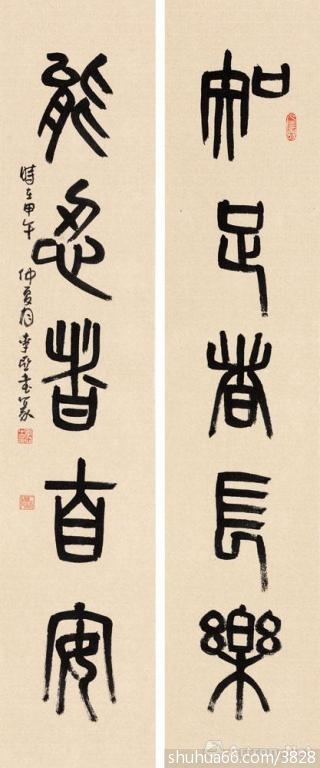 知足者長樂
能忍者自安
時在甲午 仲夏月李書篆
shuhua66.com/3828